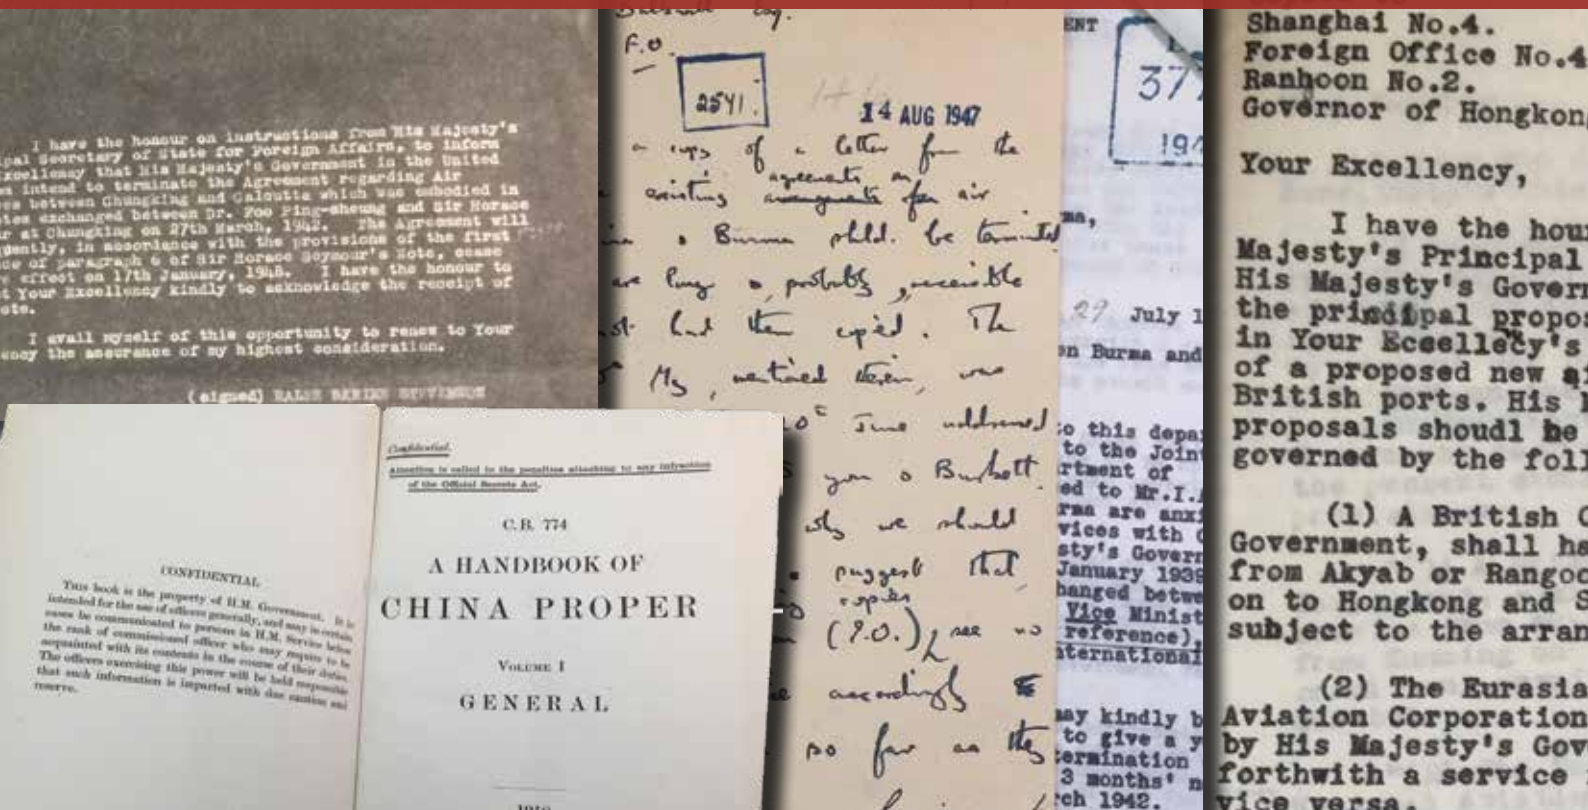 I have the honour on instructions from His Majesty's
ipal Secretary of State for Foreign Affairs, to inform
Excellency that His Majesty's Government in the United
intend to terminate the Agreement regarding Air
between Chungking and Calcutta which was embodied in
exchanged between Dr. Foo Ping-sheung and Sir Horace
at Chungking on 27th March, 1942. The Agreement will
quently, in accordance with the provisions of the first
of paragraph 6 of Sir Horace Seymour's Note, cease
effect on 17th January, 1948. I have the honour to
Your Excellency kindly to acknowledge the receipt of
ote.
I avail myself of this opportunity to renew to Your
ency the assurance of my highest consideration.
(signed)
CONFIDENTIAL
This book is the property of H.M. Government. It is
intended for the use of officers generally, and may in certain
cases be communicated to persons in H.M. Service below
the rank of commissioned officer who may require to be
acquainted with its contents in the course of their duties.
The officers exercising this power will be held responsible
that such information is imparted with due caution and
reserve.
Confidential.
Attention is called to the penalties attaching to any infraction
of the Official Secrets Act.
C.B. 774
A HANDBOOK OF
CHINA PROPER
VOLUME I
GENERAL
Esq.
F.O.
2541
14 AUG 1947
a copy of a letter from the
agreements on
existing arrangements for air
Burma shld. be terminated
are long & probably accessible
had them copied. The
mentioned therein, was
June addressed
you & Burkett.
why we should
suggest that
copies
see no
accordingly
so far as they
ENT
377
194
ma,
29 July 1
on Burma and
to this depa
to the Join
rtment of
ed to Mr.I.
rma are anxi
vices with C
sty's Govern
January 1939
hanged betwe
Vice Minist
reference),
nternational
may kindly b
to give a y
ermination
3 months' n
rch 1942.
Shanghai No.4.
Foreign Office No.4
Ranhoon No.2.
Governor of Hongkong
Your Excellency,
I have the hour
Majesty's Principal
His Majesty's Govern
the prindipal propos
in Your Eceellecy's
of a proposed new ai
British ports. His
proposals shoudl be
governed by the foll
(1) A British C
Government, shall ha
from Akyab or Rangoo
on to Hongkong and S
subject to the arran
(2) The Eurasia
Aviation Corporation
by His Majesty's Gov
forthwith a service
vice versa.